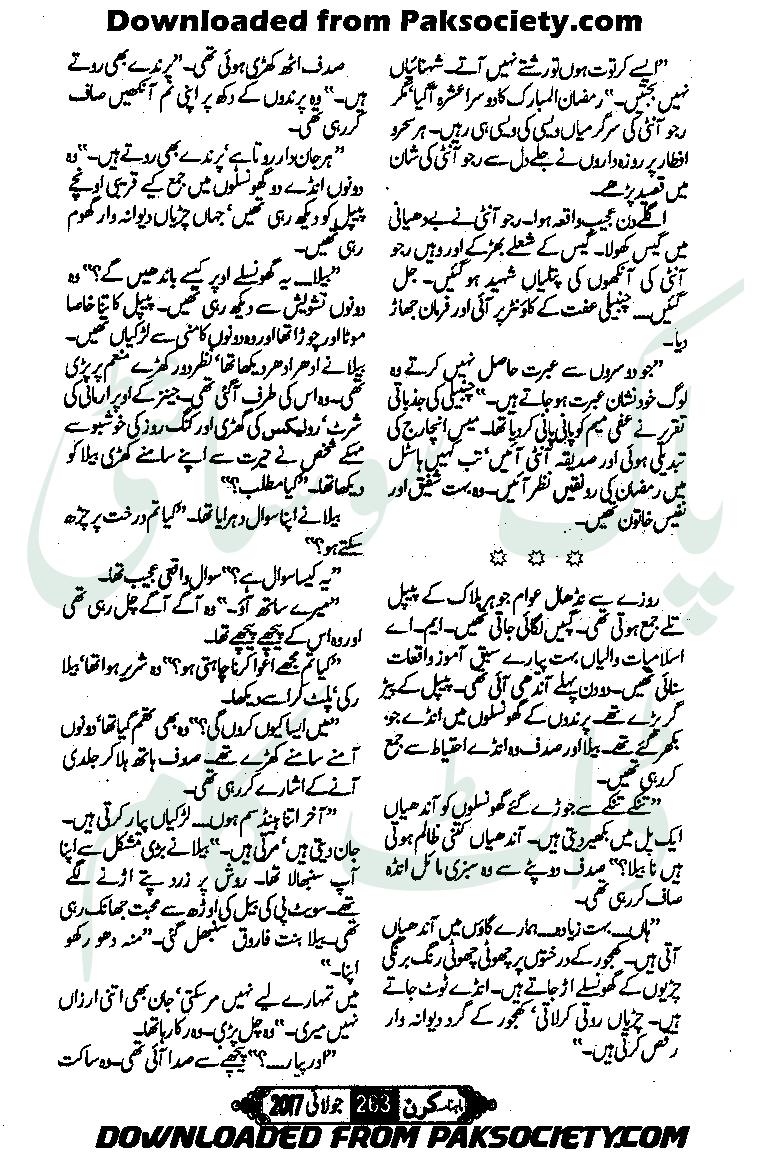 Downloaded from Paksociety.com
”ایسے کرتوت ہوں تو رشتے نہیں آتے۔ شہنائیاں
نہیں بجتیں۔“ رمضان المبارک کا دوسرا عشرہ آگیا‘ مگر
رجو آنٹی کی سرگرمیاں ویسی کی ویسی ہی رہیں۔ ہر سحر و
افطار پر روزہ داروں نے جلے دل سے رجو آنٹی کی شان
میں قصیدے پڑھے۔
اگلے دن عجیب واقعہ ہوا۔ رجو آنٹی نے بے دھیانی
میں گیس کھولا۔ گیس کے شعلے بھڑکے اور وہیں رجو
آنٹی کی آنکھوں کی پتلیاں شہید ہو گئیں۔ جل
گئیں۔۔۔ چنبیلی عفت کے کاؤنٹر پر آئی اور فرمان جھاڑ
دیا۔
”جو دوسروں سے عبرت حاصل نہیں کرتے وہ
لوگ خود نشان عبرت ہو جاتے ہیں۔“ چنبیلی کی جذباتی
تقریر نے عفی میم کو پانی پانی کر دیا تھا۔ میس انچارج کی
تبدیلی ہوئی اور صدیقہ آنٹی آئیں‘ تب کہیں ہاسٹل
میں رمضان کی رونقیں نظر آئیں۔ وہ بہت شفیق اور
نفیس خاتون تھیں۔
☼ ☼ ☼
روزے سے نڈھال عوام جوہر بلاک کے پیپل
تلے جمع ہوتی تھی۔ گپیں لگائی جاتی تھیں۔ ایم۔ اے
اسلامیات والیاں بہت پیارے سبق آموز واقعات
سناتی تھیں۔ دو دن پہلے آندھی آئی تھی۔ پیپل کے پیڑ
گر پڑے تھے۔ پرندوں کے گھونسلوں میں انڈے جو
بکھر گئے تھے۔ بیلا اور صدف وہ انڈے احتیاط سے جمع
کر رہی تھیں۔
”تنکے تنکے سے جوڑے گئے گھونسلوں کو آندھیاں
ایک پل میں بکھیر دیتی ہیں۔ آندھیاں کتنی ظالم ہوتی
ہیں نا بیلا؟“ صدف دوپٹے سے وہ سبزی مائل انڈہ
صاف کر رہی تھی۔
”ہاں۔۔۔ بہت زیادہ۔۔۔ ہمارے گاؤں میں آندھیاں
آتی ہیں۔ کھجور کے درختوں پر چھوٹی چھوٹی رنگ برنگی
چڑیوں کے گھونسلے اڑ جاتے ہیں۔ انڈے ٹوٹ جاتے
ہیں۔ چڑیاں روتی کرلاتی‘ کھجور کے گرد دیوانہ وار
رقص کرتی ہیں۔“
صدف اٹھ کھڑی ہوئی تھی۔ ”پرندے بھی روتے
ہیں۔“ وہ پرندوں کے دکھ پر اپنی نم آنکھیں صاف
کر رہی تھی۔
”ہر جان دار روتا ہے‘ پرندے بھی روتے ہیں۔“ وہ
دونوں انڈے دو گھونسلوں میں جمع کیے قریبی اونچے
پیپل کو دیکھ رہی تھیں‘ جہاں چڑیاں دیوانہ وار گھوم
رہی تھیں۔
”بیلا۔۔۔ یہ گھونسلے اوپر کیسے باندھیں گے؟“ وہ
دونوں تشویش سے دیکھ رہی تھیں۔ پیپل کا تنا خاصا
موٹا اور چوڑا تھا اور وہ دونوں کامنی سے لڑکیاں تھیں۔
بیلا نے ادھر ادھر دیکھا تھا‘ نظر دور کھڑے منعم پر پڑی
تھی۔ وہ اس کی طرف آگئی تھی۔ جینز کے اوپر ارمانی کی
شرٹ‘ رولیکس کی گھڑی اور کنگ روز کی خوشبو سے
مہکے شخص نے حیرت سے اپنے سامنے کھڑی بیلا کو
دیکھا تھا۔ ”کیا مطلب؟“
بیلا نے اپنا سوال دہرایا تھا۔ ”کیا تم درخت پر چڑھ
سکتے ہو؟“
”یہ کیسا سوال ہے؟“ سوال واقعی عجیب تھا۔
”میرے ساتھ آؤ۔“ وہ آگے آگے چل رہی تھی
اور وہ اس کے پیچھے پیچھے تھا۔
”کیا تم مجھے اغوا کرنا چاہتی ہو؟“ وہ شریر ہوا تھا‘ بیلا
رکی‘ پلٹ کر اسے دیکھا۔
”میں ایسا کیوں کروں گی؟“ وہ بھی تھم گیا تھا‘ دونوں
آمنے سامنے کھڑے تھے۔ صدف ہاتھ ہلا کر جلدی
آنے کے اشارے کر رہی تھی۔
”آخر اتنا ہینڈسم ہوں۔۔۔ لڑکیاں پیار کرتی ہیں۔
جان دیتی ہیں‘ مرتی ہیں۔“ بیلا نے بڑی مشکل سے اپنا
آپ سنبھالا تھا۔ روش پر زرد پتے اڑنے لگے
تھے۔ سویٹ پی کی بیل کی اوڑھ سے محبت جھانک رہی
تھی۔ بیلا بنت فاروق سنبھل گئی۔ ”منہ دھو رکھو
اپنا۔“
میں تمہارے لیے نہیں مر سکتی‘ جان بھی اتنی ارزاں
نہیں میری۔“ وہ چل پڑی۔ وہ رکا رہا تھا۔
”اور پیار۔۔۔؟“ پیچھے سے صدا آئی تھی۔ وہ ساکت
ماہنامہ کرن 263 جولائی 2017
DOWNLOADED FROM PAKSOCIETY.COM
پاک سوسائٹی
ڈاٹ کام